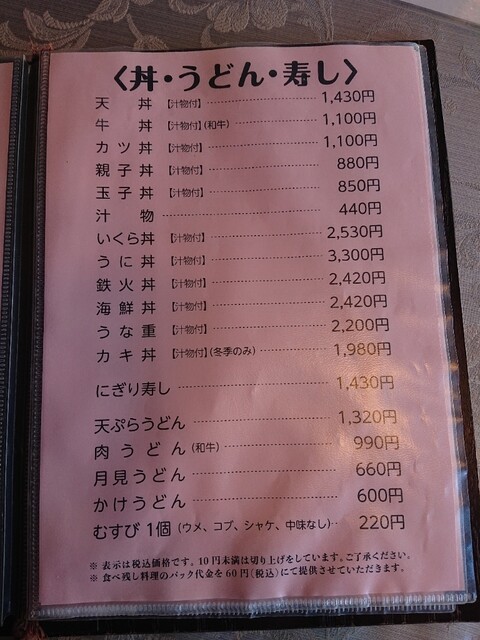 〈丼・うどん・寿し〉
天丼【汁物付】 1,430円
牛丼【汁物付】(和牛) 1,100円
カツ丼【汁物付】 1,100円
親子丼【汁物付】 880円
玉子丼【汁物付】 850円
汁物 440円
いくら丼【汁物付】 2,530円
うに丼【汁物付】 3,300円
鉄火丼【汁物付】 2,420円
海鮮丼【汁物付】 2,420円
うな重【汁物付】 2,200円
カキ丼【汁物付】(冬季のみ) 1,980円
にぎり寿し 1,430円
天ぷらうどん 1,320円
肉うどん(和牛) 990円
月見うどん 660円
かけうどん 600円
むすび1個(ウメ、コブ、シャケ、中味なし) 220円
※ 表示は税込価格です。10円未満は切り上げをしています。ご了承ください。
※ 食べ残し料理のパック代金を60円(税込)にて提供させていただきます。